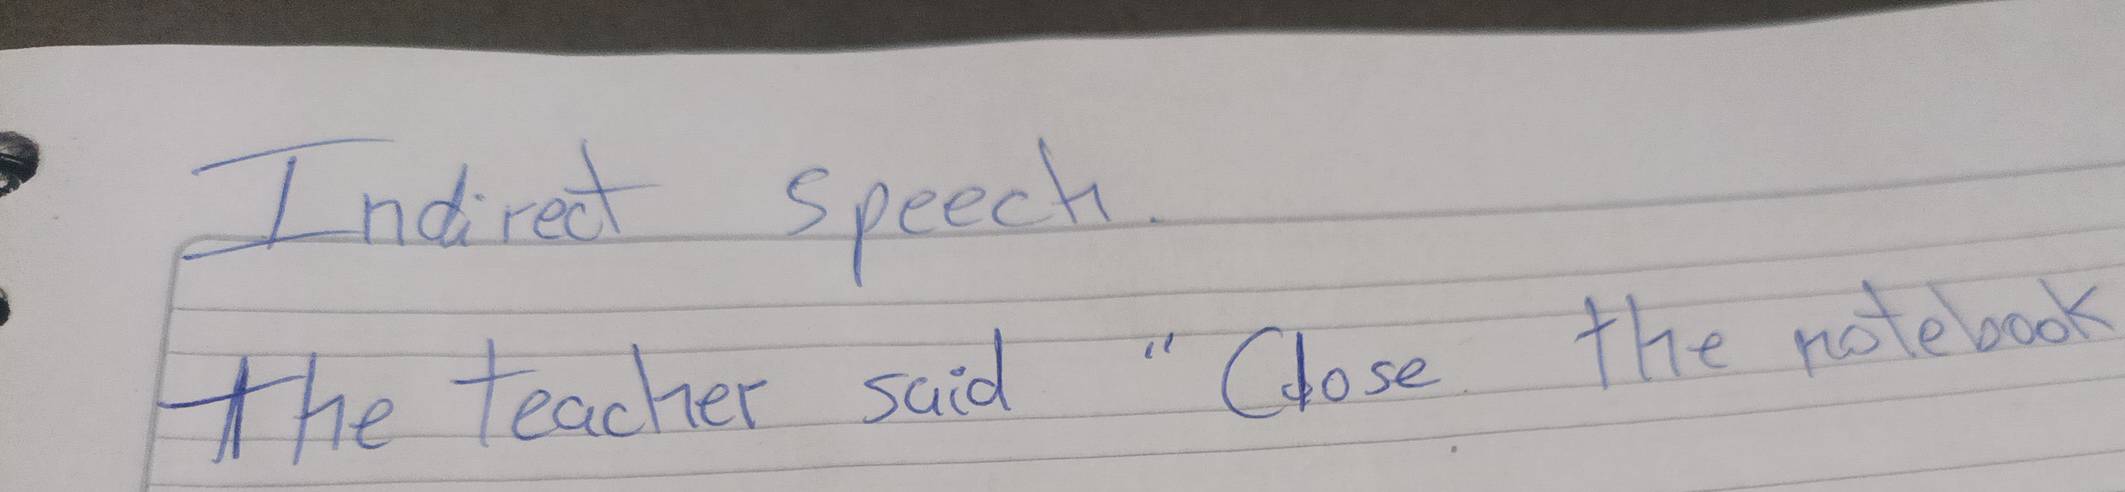 Indirect speech.
the teacher said "Close the notebook